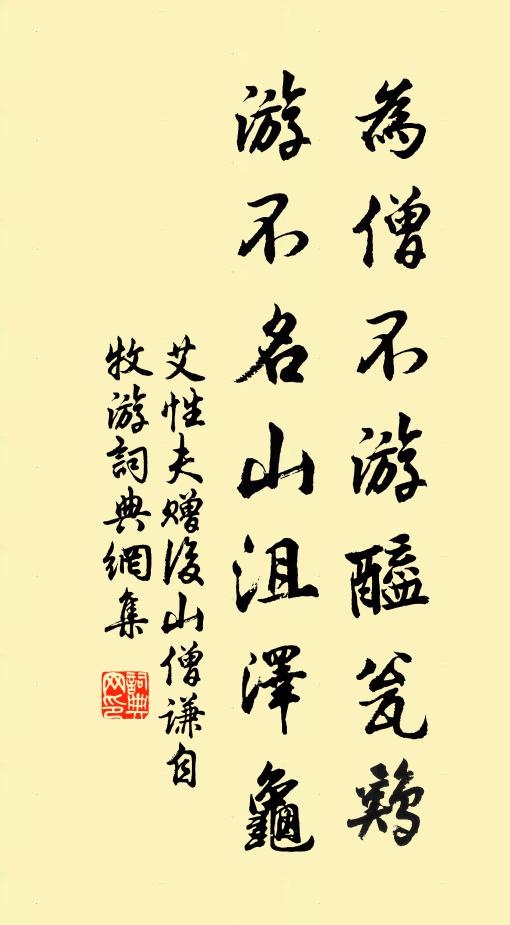 為僧不游醯瓮鷄
游不名山沮澤龜
艾性夫贈後山僧謙自
牧游詞典網集
詞典网印